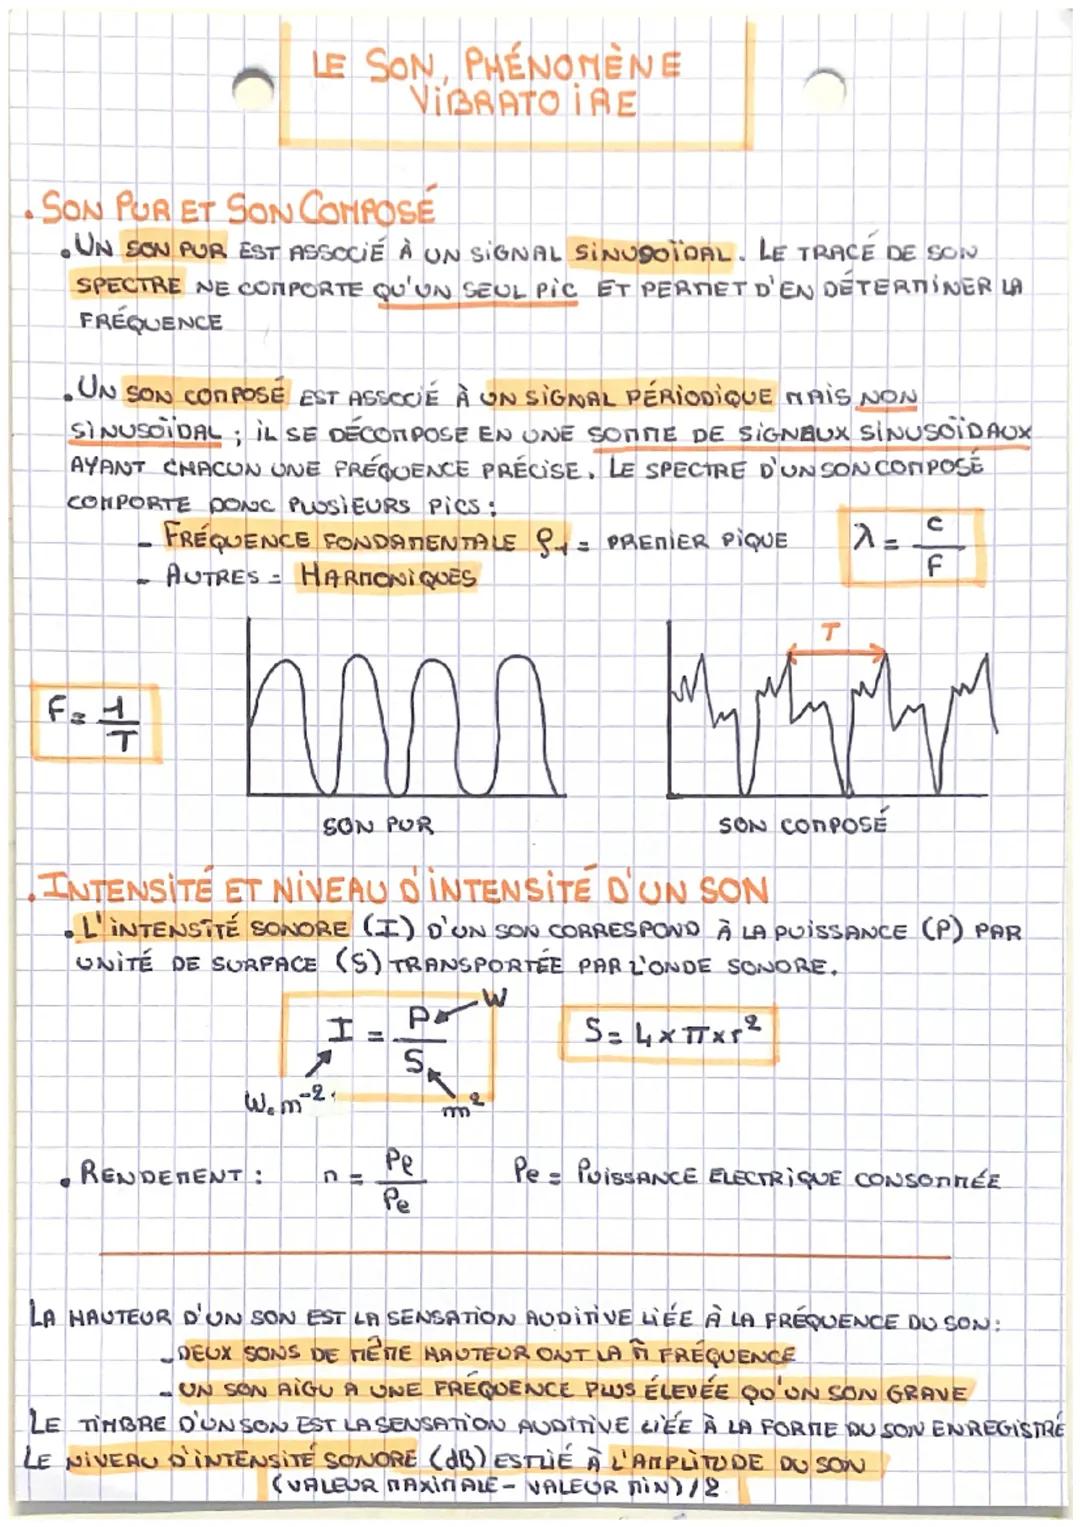 LE SON, PHÉNOMÈNE
VIBRATOIRE
. SON PUR ET SON COMPOSÉ
. UN SON PUR EST ASSOCIÉ À UN SIGNAL SINUSOÏDAL. LE TRACÉ DE SON
SPECTRE NE COMPORTE QU'UN SEUL PIC ET PERMET D'EN DÉTERMINER LA
FRÉQUENCE
. UN SON COMPOSÉ EST ASSOCIÉ À UN SIGNAL PÉRIODIQUE MAIS NON
SINUSOÏDAL ; IL SE DÉCOMPOSE EN UNE SOMME DE SIGNAUX SINUSOÏDAUX
AYANT CHACUN UNE FRÉQUENCE PRÉCISE. LE SPECTRE D'UN SON COMPOSÉ
COMPORTE DONC PLUSIEURS PICS :
- FRÉQUENCE FONDAMENTALE f1 = PREMIER PIQUE
- AUTRES = HARMONIQUES
λ = c/F
F = 1/T
T
SON PUR
SON COMPOSÉ
. INTENSITÉ ET NIVEAU D'INTENSITÉ D'UN SON
. L'INTENSITÉ SONORE (I) D'UN SON CORRESPOND À LA PUISSANCE (P) PAR
UNITÉ DE SURFACE (S) TRANSPORTÉE PAR L'ONDE SONORE.
I = P/S
W
W.m⁻²
m²
S = 4 x π x r²
. RENDEMENT : n = Pe/Pe Pe = PUISSANCE ELECTRIQUE CONSOMMÉE
LA HAUTEUR D'UN SON EST LA SENSATION AUDITIVE LIÉE À LA FRÉQUENCE DU SON :
- DEUX SONS DE MÊME HAUTEUR ONT LA m̂ FRÉQUENCE
- UN SON AIGU A UNE FRÉQUENCE PLUS ÉLEVÉE QU'UN SON GRAVE
LE TIMBRE D'UN SON EST LA SENSATION AUDITIVE LIÉE À LA FORME DU SON ENREGISTRÉ
LE NIVEAU D'INTENSITÉ SONORE (dB) EST LIÉ À L'AMPLITUDE DU SON
(VALEUR MAXIMALE - VALEUR MIN) / 2